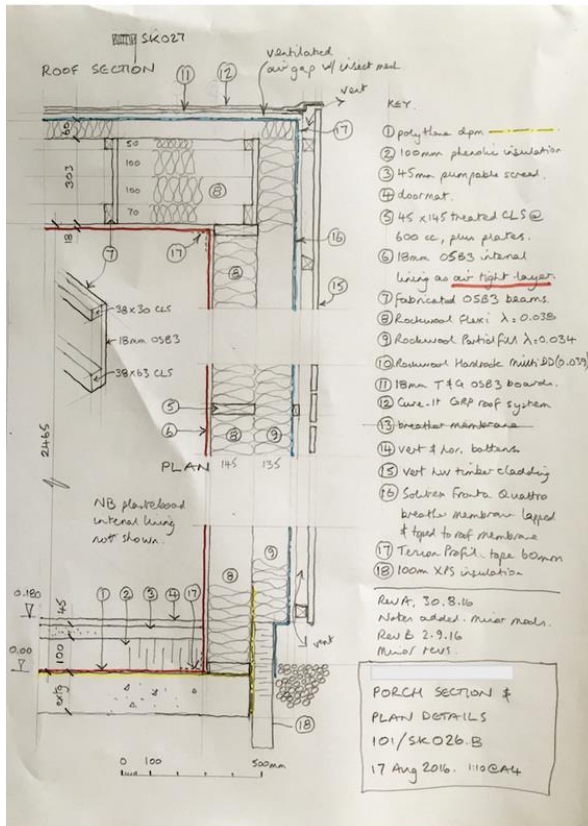 SK027
ROOF SECTION
ventilated
air gap w/ insect mesh
vent
11
12
17
16
15
60
50
100
303
100
8
70
18
17
7
8
38x30 CLS
18mm OSB3
38x63 CLS
5
6
8
9
PLAN
145
135
2465
NB plasterboard
internal lining
not shown.
9
8
0.180
1
2
3
4
17
45
100
0.00
extg
vent
18
0 100 500mm
KEY
1 polythene dpm
2 100mm phenolic insulation
3 45mm pumpable screed
4 doormat.
5 45 x 145 treated CLS @
600 cc, plus plates.
6 18mm OSB3 internal
lining as air tight layer.
7 Fabricated OSB3 beams.
8 Rockwool Flexi λ = 0.038
9 Rockwool Partial fill λ = 0.034
10 Rockwool Hardrock Multi DD (0.039)
11 18mm T & G OSB3 boards.
12 Cure-It GRP roof system
13 breather membrane
14 vert & hor. battens
15 vert hw timber cladding
16 Solitex Fronta Quattro
breather membrane lapped
& taped to roof membrane
17 Tescon Profil tape 60mm
18 100m XPS insulation
Rev A, 30.8.16
Notes added. Minor mods.
Rev B 2.9.16
Minor revs.
PORCH SECTION &
PLAN DETAILS
101/SK026.B
17 Aug 2016. 1:10@A4